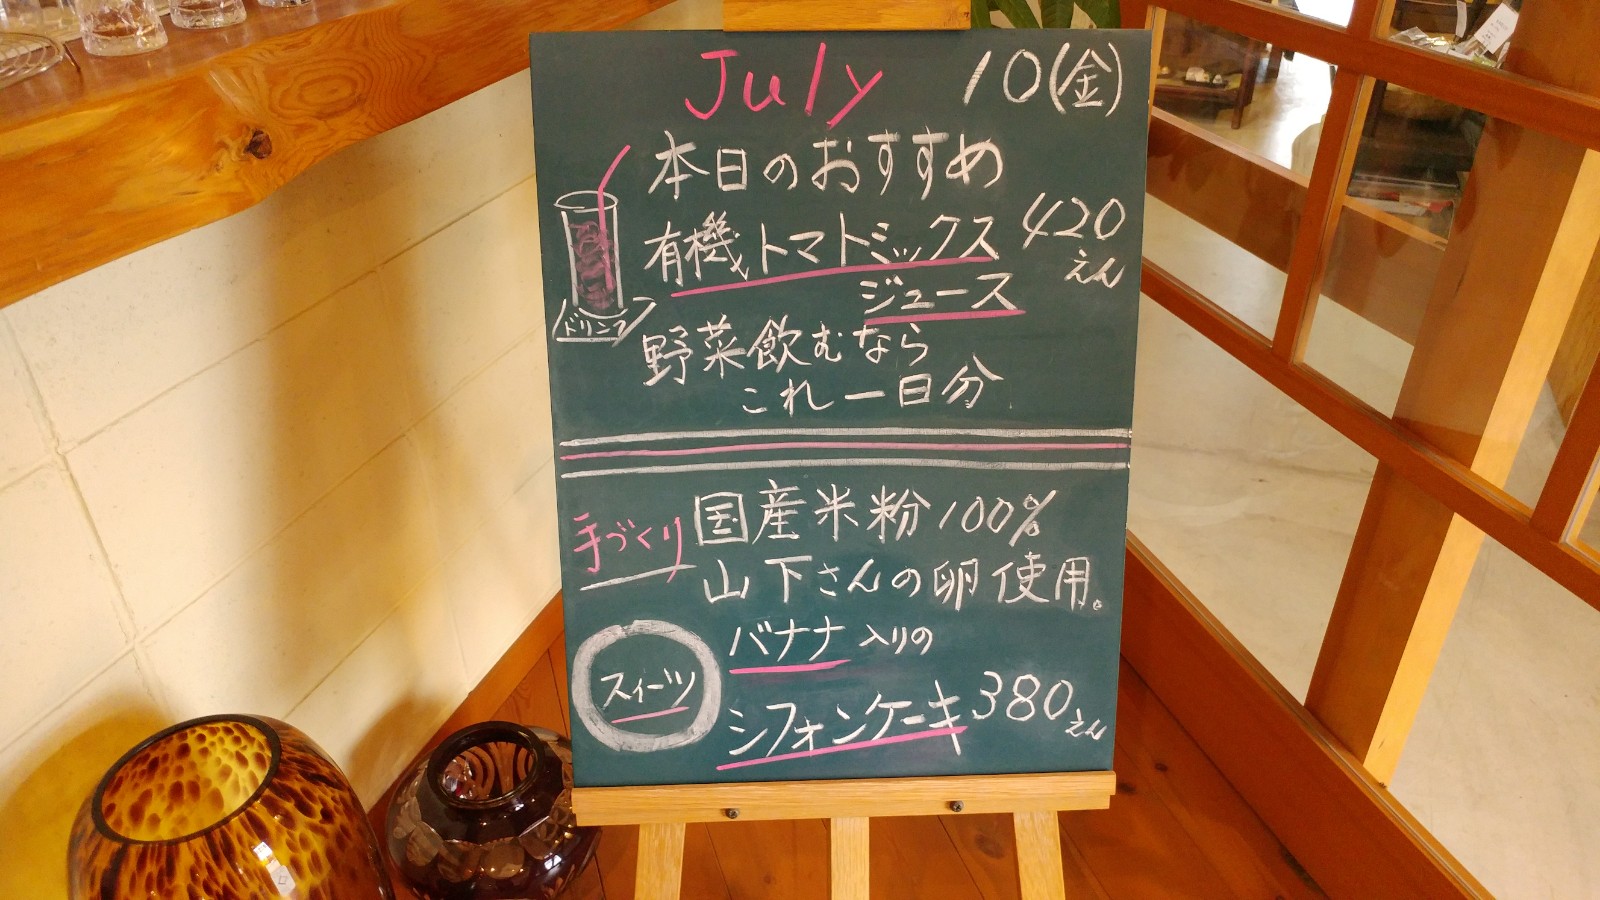 July 10(金)
本日のおすすめ
有機トマトミックス 420えん
ジュース
ドリンク
野菜飲むなら
これ一日分
手づくり 国産米粉100%
山下さんの卵使用。
バナナ入りの
スイーツ
シフォンケーキ 380えん